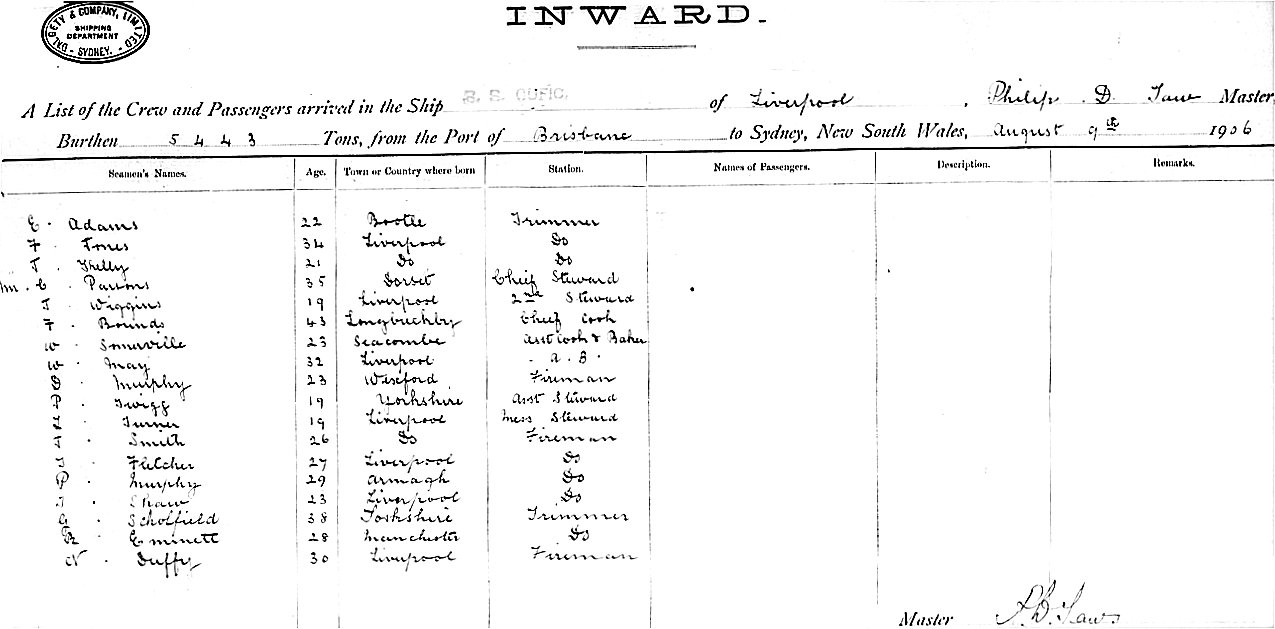 DALGETY & COMPANY, LIMITED
SHIPPING
DEPARTMENT
SYDNEY.
INWARD.
A List of the Crew and Passengers arrived in the Ship S. S. CUFIC. of Liverpool, Philip D. Master
Burthen 5443 Tons, from the Port of Brisbane to Sydney, New South Wales, August 9th 1906
Seamen's Names. Age. Town or Country where born Station. Names of Passengers. Description. Remarks.
E. Adams 22 Bootle Trimmer
F. Jones 34 Liverpool Do
T. 21 Do Do
M. E. Parsons 35 Dorset Chief Steward
T. Wiggins 19 Liverpool 2nd Steward
F. Bounds 43 Longbuckby Chief Cook
W. Somerville 23 Seacombe Asst Cook & Baker
W. May 32 Liverpool A. B.
D. Murphy 23 Wexford Fireman
P. Twigg 19 Yorkshire Asst Steward
Turner 19 Liverpool Mess Steward
T. Smith 26 Do Fireman
Fletcher 27 Liverpool Do
P. Murphy 29 Armagh Do
Shaw 23 Liverpool Do
G. Scholfield 38 Yorkshire Trimmer
R. Eminett 28 Manchester Do
N. Duffy 30 Liverpool Fireman
Master